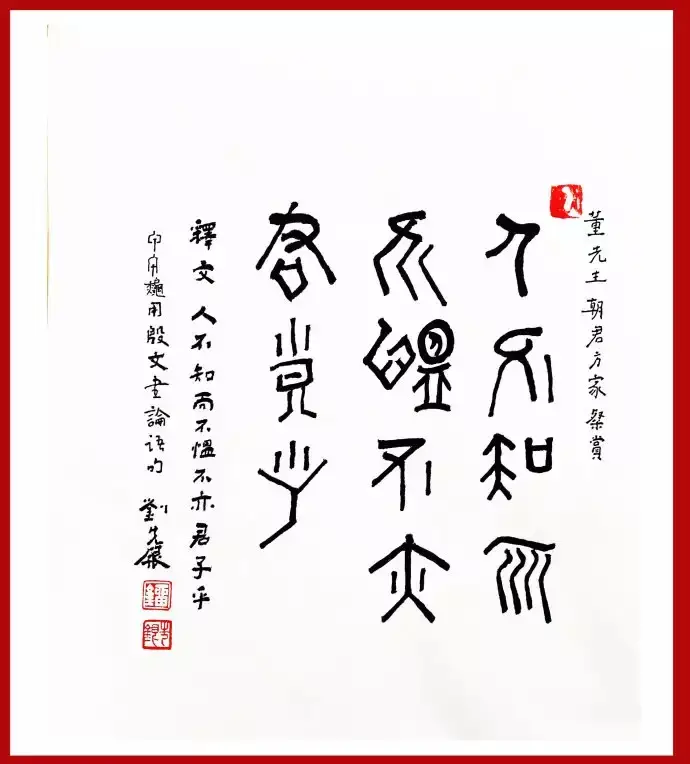 董先生 朝君方家粲賞
人不知而
不慍不亦
君子乎
釋文 人不知而不慍不亦君子乎
用殷文書論語句 劉先銀